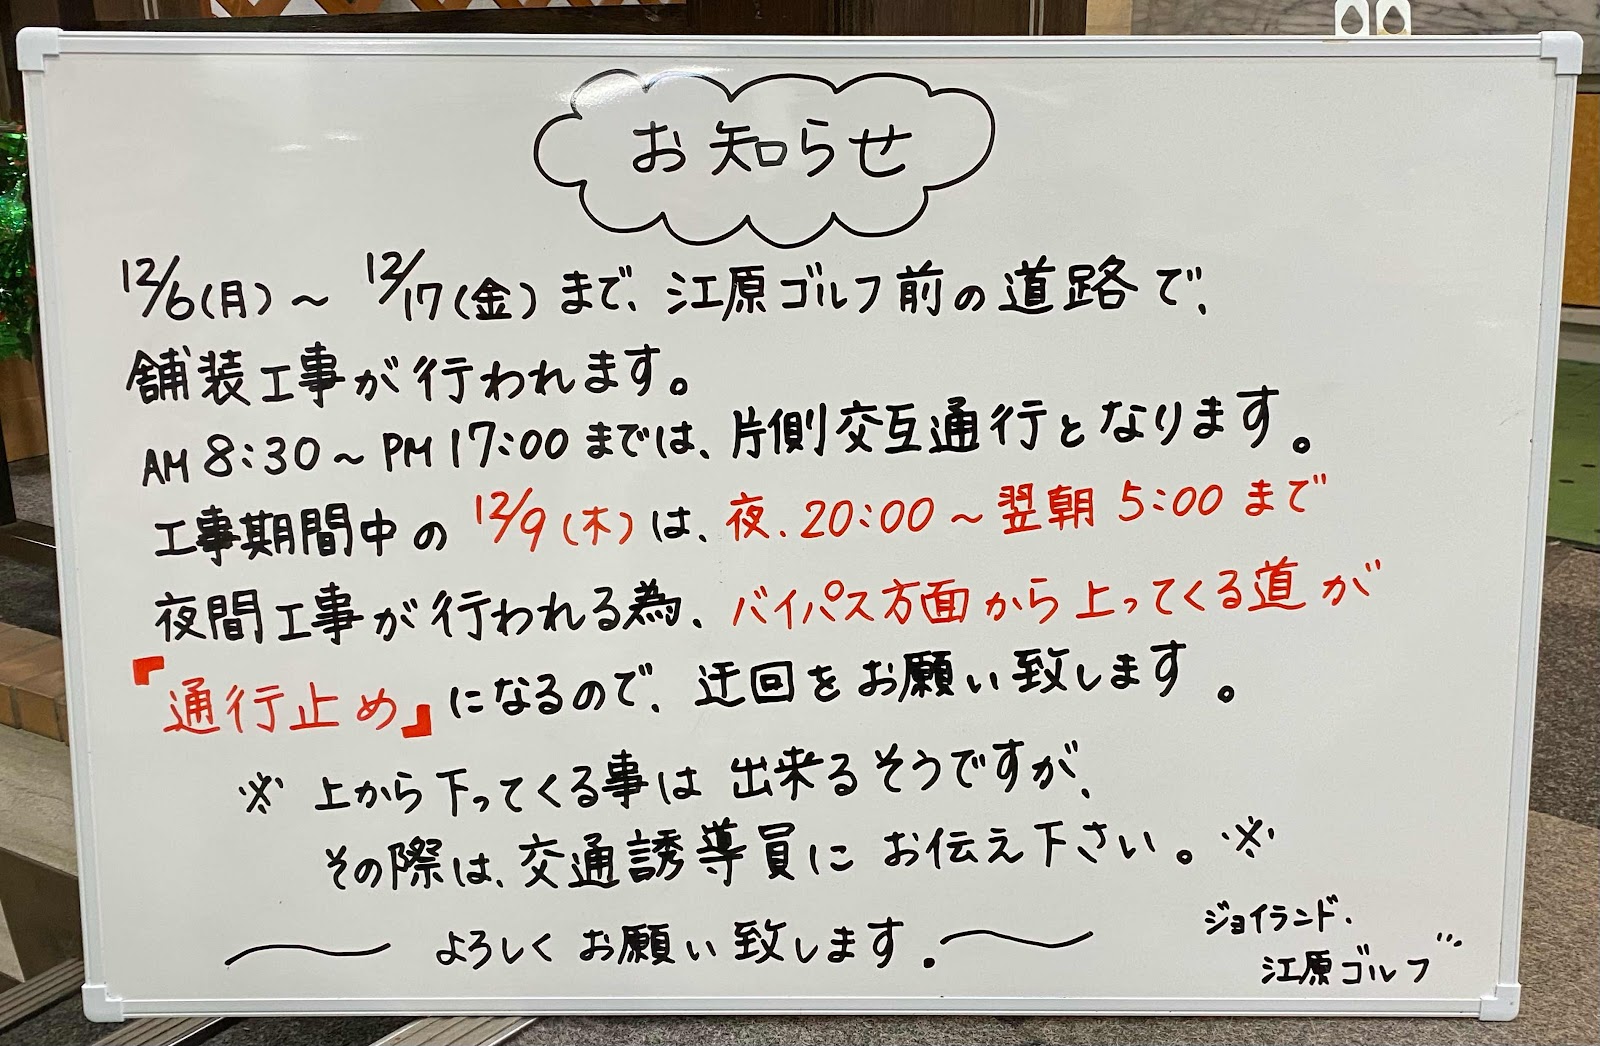 お知らせ
12/6(月)～12/17(金)まで、江原ゴルフ前の道路で、
舗装工事が行われます。
AM8:30～PM17:00までは、片側交互通行となります。
工事期間中の12/9(木)は、夜、20:00～翌朝5:00まで
夜間工事が行われる為、バイパス方面から上ってくる道が
『通行止め』になるので、迂回をお願い致します。
※上から下ってくる事は出来るそうですが、
その際は、交通誘導員にお伝え下さい。※
よろしくお願い致します。
ジョイランド.
江原ゴルフ